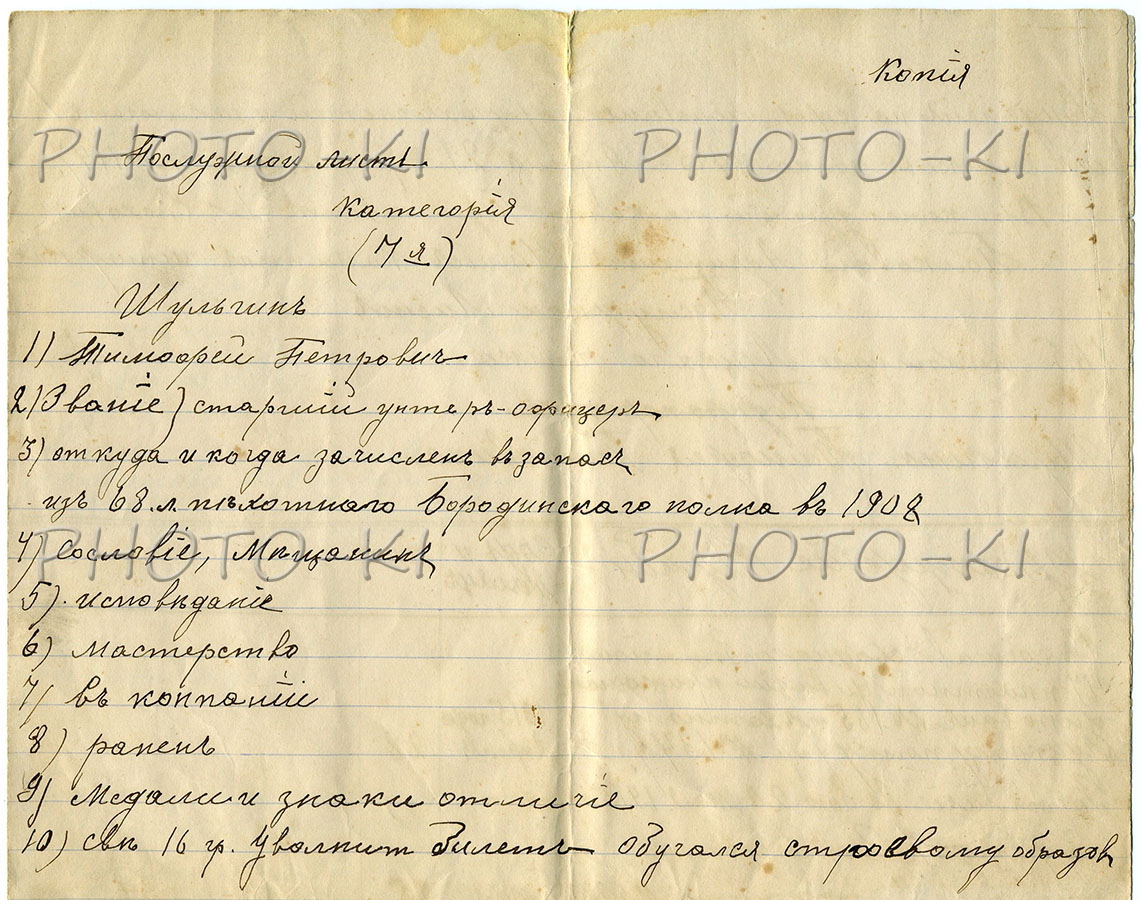 Копія
Послужной листъ
Категорія
(7 я)
Шульгинъ
1) Тимофей Петровичъ
2) Званіе) старшій унтеръ-офицеръ
3) откуда и когда зачисленъ въ запасъ
изъ 68 л. пѣхотнаго Бородинскаго полка въ 1908
4) Сословіе, Мѣщанинъ
5) исповѣданіе
6) мастерство
7) въ коппаніи
8) раненъ
9) Медали и знаки отличіе
10) 16 гр. билетъ обучался строевому образов
PHOTO-KI
PHOTO-KI
PHOTO-KI
PHOTO-KI